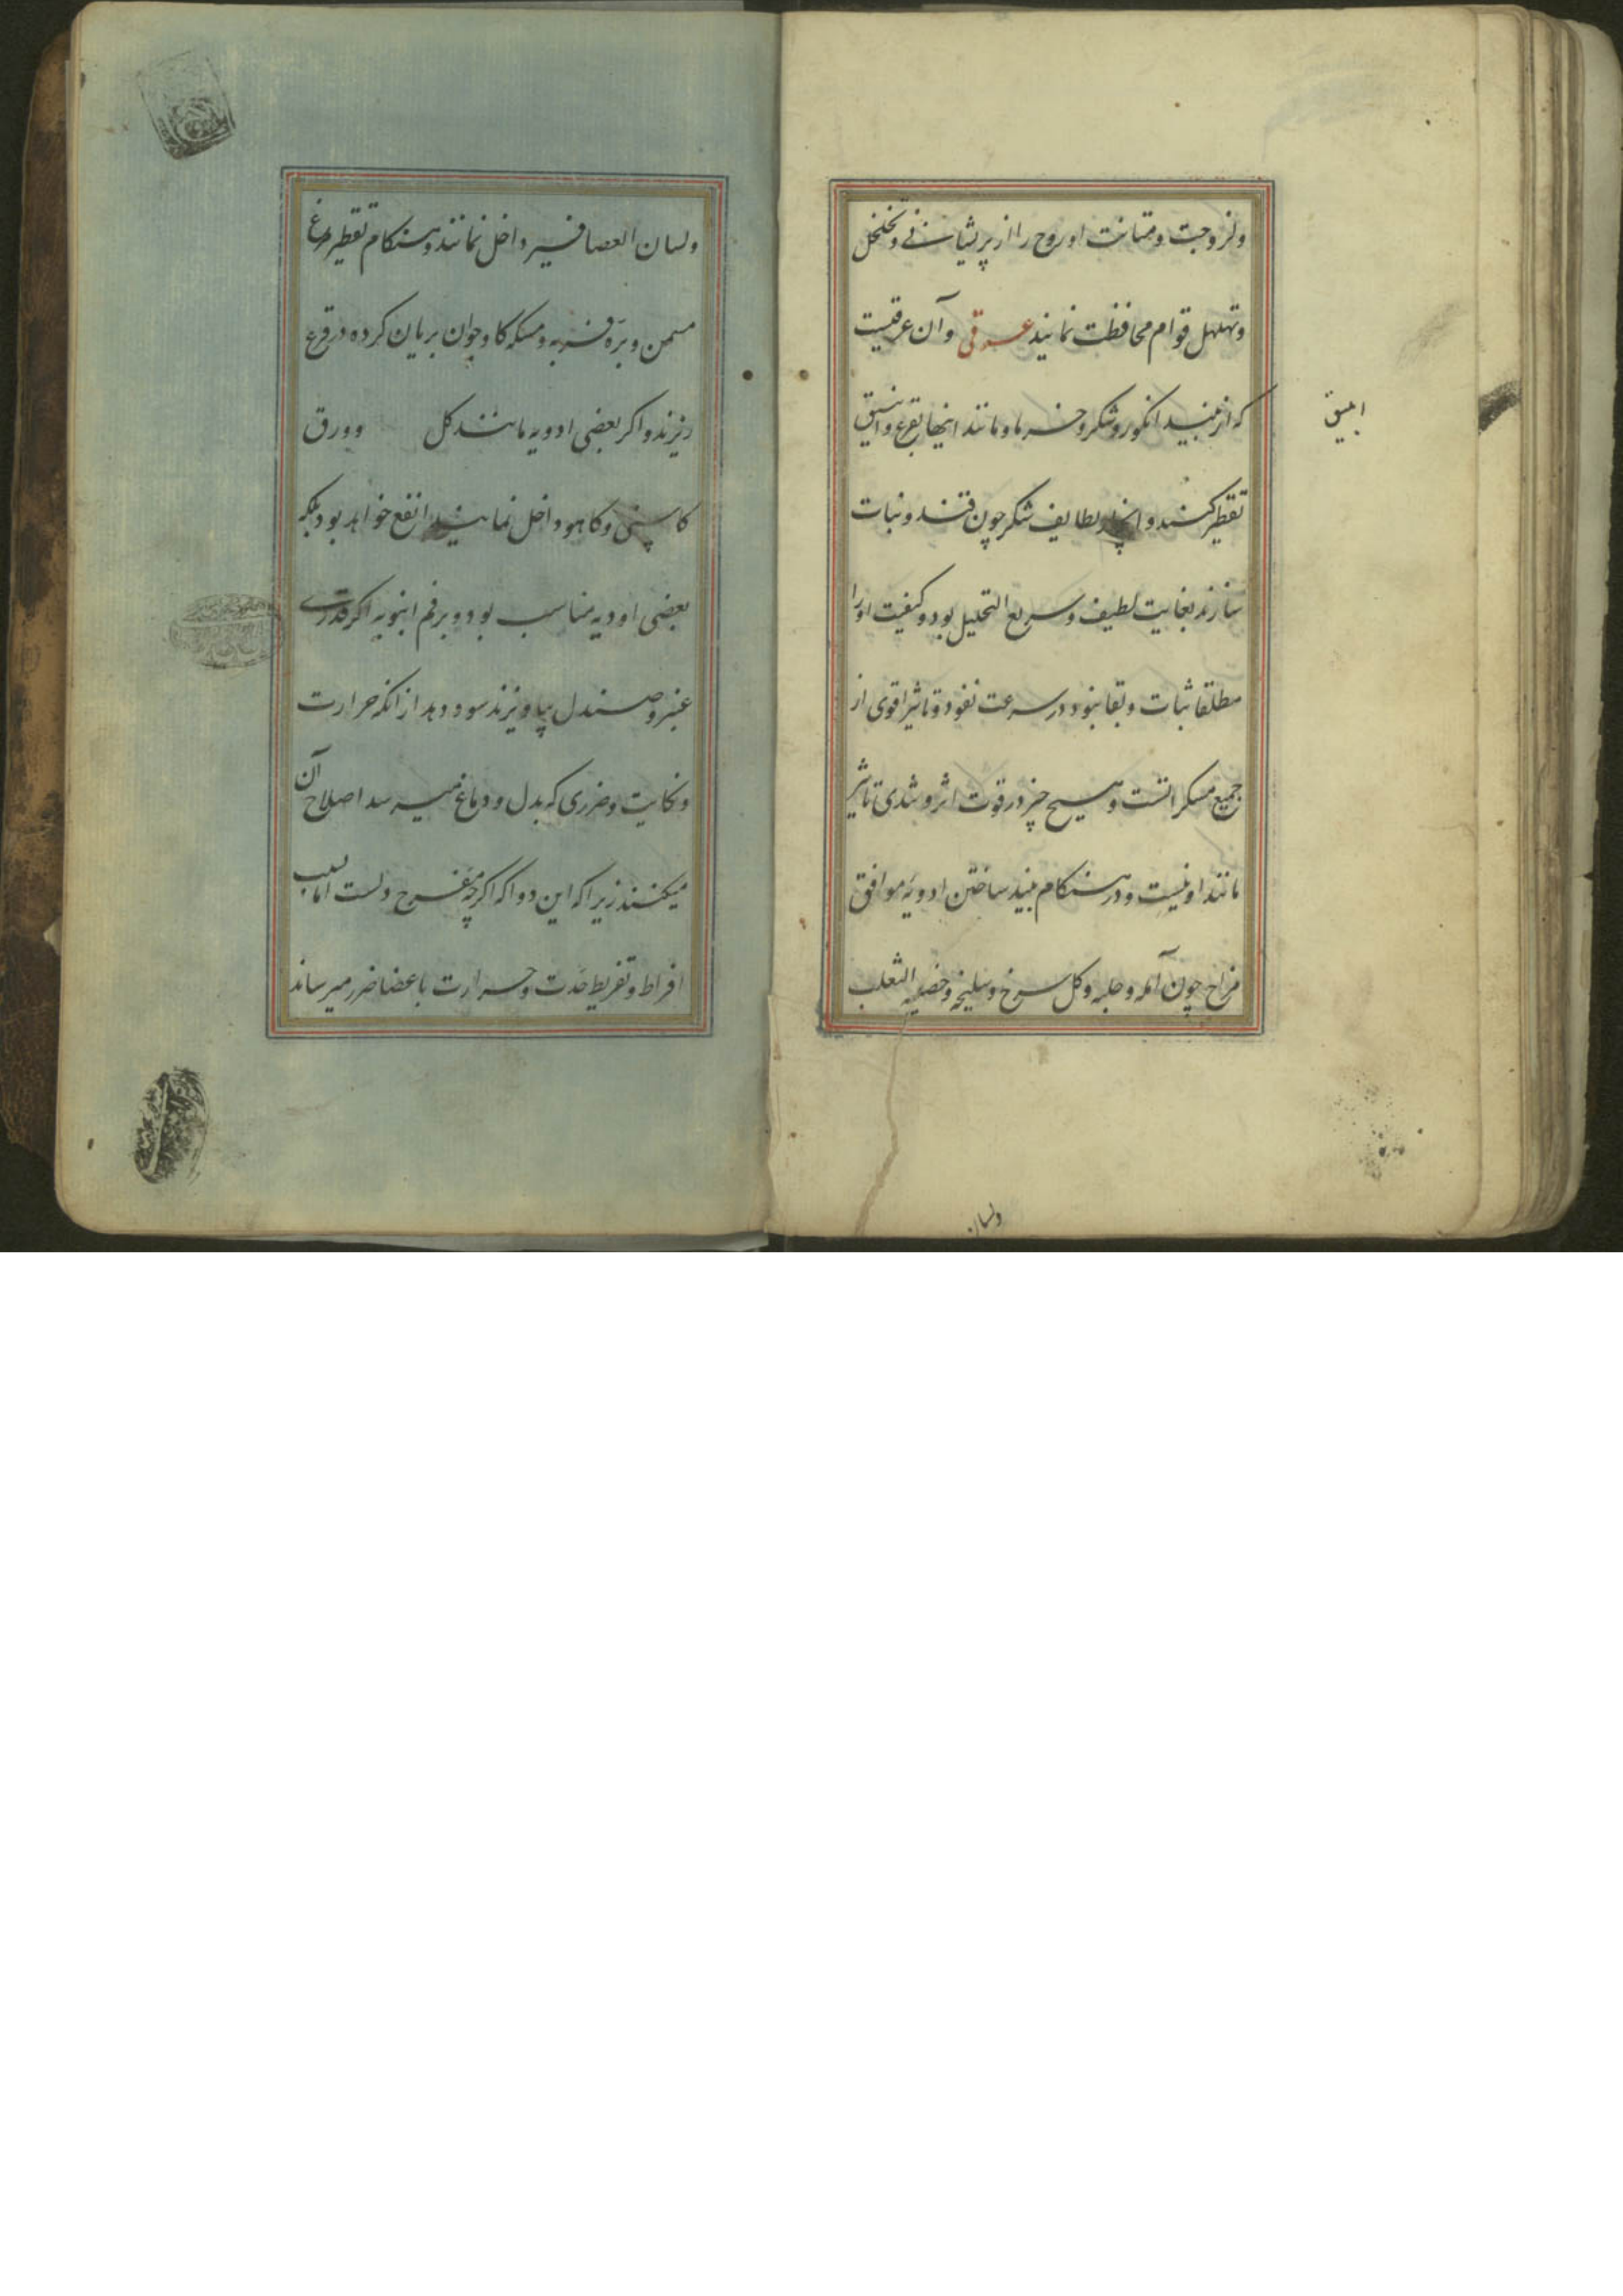 ولزوجت ومتانت او روح را از پریشانی وتخلخل
وتهلهل قوام محافظت نمایند عرقی وآن عرقیست
که از نبید انکور وشکر وخرما ومانند اینها بقرع وانبیق
انبیق
تقطیر کنند و لطایف شکر چون قند ونبات
سازند بغایت لطیف وسریع التحلیل بود وکیفیت اورا
مطلقا ثبات وبقا نبود در سرعت نفوذ وتاثیر اقوی از
جمیع مسکراتست وهیچ چیز در قوت اثر وشدی تاثیر
مانند او نیست ودر هنکام نبید ساختن ادویه موافق
مزاج چون آمله وحلبه وکل سرخ وسلیخه وخصیه الثعلب
ولسان
ولسان العصافیر داخل نمانند وهنکام تقطیر مرغ
مسمن وبرّه فربه ومسکه کاو جوان بریان کرده در قرع
ریزند واکر بعضی ادویه مانند کل وورق
کاسنی وکاهو داخل نمایند انفع خواهد بود بلکه
بعضی اودیه مناسب بود وبر فم انبوبه اکر قدری
عنبر وصندل بیاویزند سود دهد از انکه حرارت
ونکایت وضرری که بدل ودماغ میرسد اصلاح آن
میکنند زیرا که این دوا که اکرچه مفرح دلست اما بسبب
افراط وتفریط حدت وحرارت باعضا ضرر میرساند